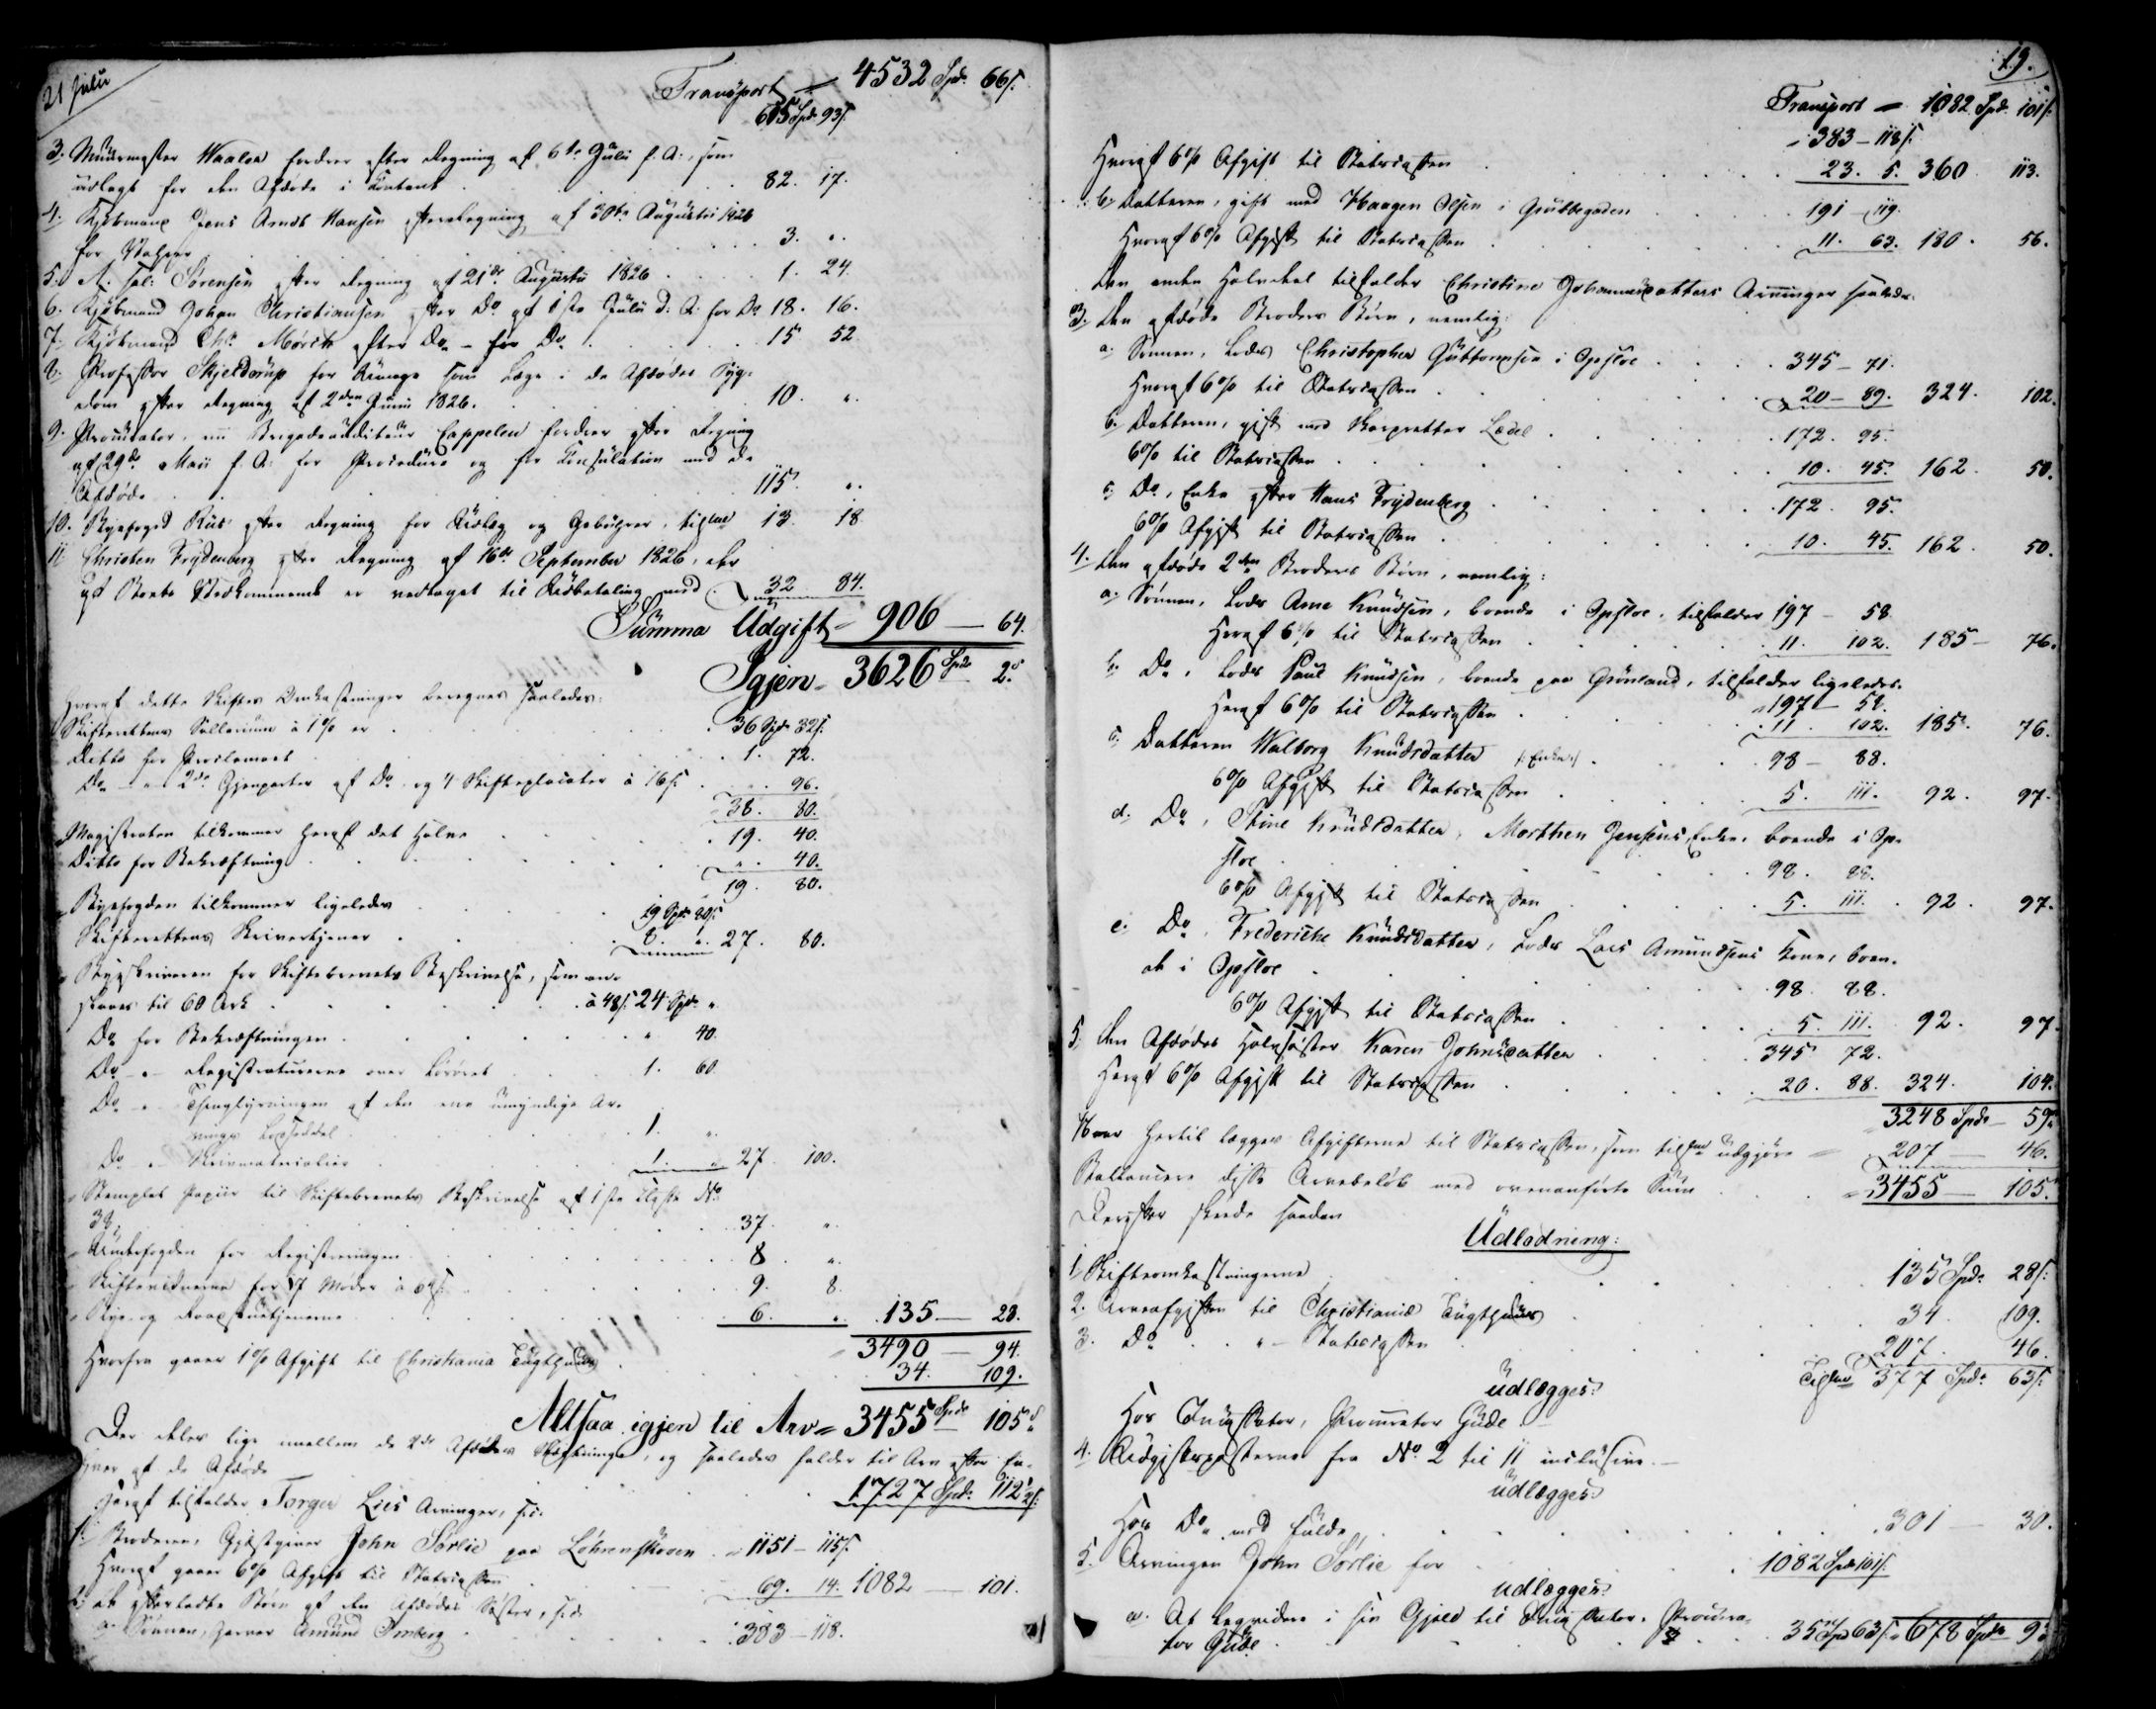 21 Julii
Transport = 4532 Spd. 66 s.
615 Spd. 93 s.
3. Muurmester Waaler fordrer efter Regning af 6te Julii f. A., som
udlagt for den Afdøde i Contant . 82. 17.
4. Kjøbmand Jens Arndt Hansen efter Regning af 30te Augustii 1826
for Vahrer . 3. "
5. A. sal: Sørensen efter Regning af 21de Augustii 1826 . 1. 24.
6. Kjøbmand Johan Christiansen efter Do af 1ste Julii d. A. for Do 18. 16.
7. Kjøbmand Chr. Mørch efter Do – for Do . 15 52.
8. Professor Skjelderup for Umage som Læge i de Afdødes Syg-
dom efter Regning af 2den Junii 1826. 10. "
9. Procurator, nu Brigadeauditeur Cappelen fordrer efter Regning
af 29de Maii f. A. for Procedure og for Consulation med de
Afdøde . 115. "
10. Byefoged Riis efter Regning for Udlæg og Gebührer, tilsam 13. 18
11 Christen Frydenberg efter Regning af 16de September 1826, der
af Boets Vedkommende er vedtaget til Udbetaling med . 32 84.
Summa Udgift = 906 — 64.
Igjen = 3626 Spd. 2 s.
Hvoraf dette Skiftes Omkostninger beregnes saaledes:
Skifterettens Sallarium à 1% er . 36 Spd. 32 s.
Ditto for Proclamaet . 1. 72.
Do – " 2de Gjenparter af Do og 4 Skifteplacater à 16 s. " 96.
38. 80.
Magistraten tilkommer heraf det Halve . 19. 40.
Ditto for Bekræftning . " 40.
19. 80.
Byefogden tilkommer ligeledes . 19 Spd. 80 s.
Skifterettens Skrivertjener . 8. " 27. 80.
Byskriveren for Skiftebrevets Beskrivelse, som an-
slaaes til 60 Ark . à 48 s. 24 Spd. "
Do for Bekræftningen . " 40.
Do – " Registraturerne over Løsøret . 1. 60.
Do – " Thinglysningen af den ene umyndige Ar-
vings Lodseddel . 1. "
Do – " Skrivmaterialier . 1. " 27. 100.
Stemplet Papiir til Skiftebrevets Beskrivelse af 1ste Classe No
38. 37. "
Underfogden for Registreringen . 8. "
Skiftevidnerne for 17 Møder à 64 s. 9. 8.
Bye- og Raadstuetjenerne . 6. " 135 — 28.
3490 — 94.
Hvorfra gaaer 1% Afgift til Christiania Tugthuus . 34. 109.
Altsaa igjen til Arv = 3455 Spd. 105 s.
Der deles lige imellem de 2de Afdødes Slægtninge, og saaledes falder til Arv efter En-
hver af de Afdøde . 1727 Spd. 112½ s.
Heraf tilfalder Torger Lies Arvinger, s.s.
1. Broderen, Gjæstgiver John Sørlie paa Løhrenskoven . 1151 – 115 s.
Hvoraf gaaer 6% Afgift til Statscassen . 69. 14. 1082 — 101.
2. de efterladte Børn af den Afdødes Søster, s.s.
a. Sønnen, Farver Amund Omberg . 383 – 118.
19.
Transport = 1082 Spd. 101 s.
383 – 118 s.
Hvoraf 6% Afgift til Statscassen . 23. 5. 360. 113.
b. Datteren, gift med Haagen Olsen i Grubbegaden . 191 – 119.
Hvoraf 6% Afgift til Statscassen . 11. 63. 180. 56.
Den anden Halvdeel tilfalder Christine Johannesdatters Arvinger saaledes:
3. Den afdøde Broders Børn, nemlig:
a. Sønnen, Lods Christopher Guttormsen i Opsloe . 345 – 71.
Hvoraf 6% til Statscassen . 20 – 89. 324. 102.
b. Datteren, gift med Skarpretter Lædel . 172. 95.
6% til Statscassen . 10. 45. 162. 50.
c. Do, Enke efter Hans Frydenberg . 172. 95.
6% Afgift til Statscassen . 10. 45. 162. 50.
4. Den afdøde 2den Broders Børn, nemlig:
a. Sønnen, Lods Arne Knudsen, boende i Opsloe, tilfalder 197 – 58.
Heraf 6% til Statscassen . 11. 102. 185 – 76.
b. Do, Lods Paul Knudsen, boende paa Grønland, tilfalder ligeledes.
197 – 58.
Heraf 6% til Statscassen . 11. 102. 185. 76.
c. Datteren Walborg Knudsdatter /: Enke :/ . 98 – 88.
6% Afgift til Statscassen . 5. 111. 92. 97.
d. Do, Stine Knudsdatter, Morthen Jensens Enke, boende i Op-
sloe . 98. 88.
6% Afgift til Statscassen . 5. 111. 92. 97.
e. Do, Frederiche Knudsdatter, Lods Lars Amundsens Kone, boen-
de i Opsloe . 98. 88.
6% Afgift til Statscassen . 5. 111. 92. 97.
5. Den Afdødes Halvsøster Karen Johnsdatter . 345 72.
Heraf 6% Afgift til Statscassen . 20. 88. 324. 104.
3248 Spd. – 59 s.
Naar hertil lægges Afgifterne til Statscassen, som tilsam udgjøre = 207 — 46.
Ballancere disse Arvebeløb med ovenanførte Sum . 3455 — 105.
Derefter skeede saadan
Udlodning:
1. Skifteomkostningerne . 135 Spd. 28 s.
2. Arveafgiften til Christianiæ Tugthuus . 34. 109.
3. Do " – Statscassen . 207. 46.
Tilsam 377 Spd. 63 s.
udlægges:
Hos Incassator, Procurator Gude.
4. Udgiftsposterne fra No 2 til 11 inclusive. —
udlægges:
Hos Do med fulde . 301 — 30.
5. Arvingen John Sørlie for . 1082 Spd. 101 s.
udlægges:
a. At liqvidere i sin Gjæld til Incassator, Procura-
tor Gude . 35 Spd. 63 s. 678 Spd. 93